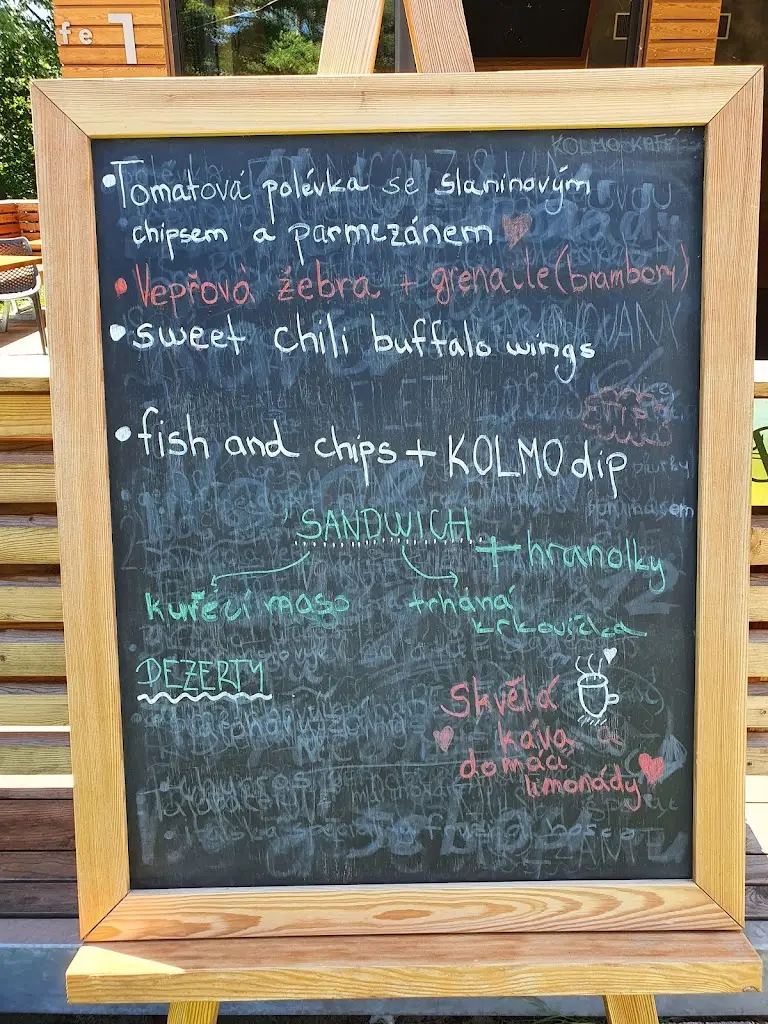 fe
KOLMO KAFÉ
• Tomatová polévka se slaninovým
chipsem a parmezánem
• Vepřová žebra + grenaile (brambory)
• sweet chili buffalo wings
• fish and chips + KOLMO dip
SANDWICH + hranolky
kuřecí maso trhaná
krkovička
DEZERTY
Skvělá
káva, a
domácí
limonády